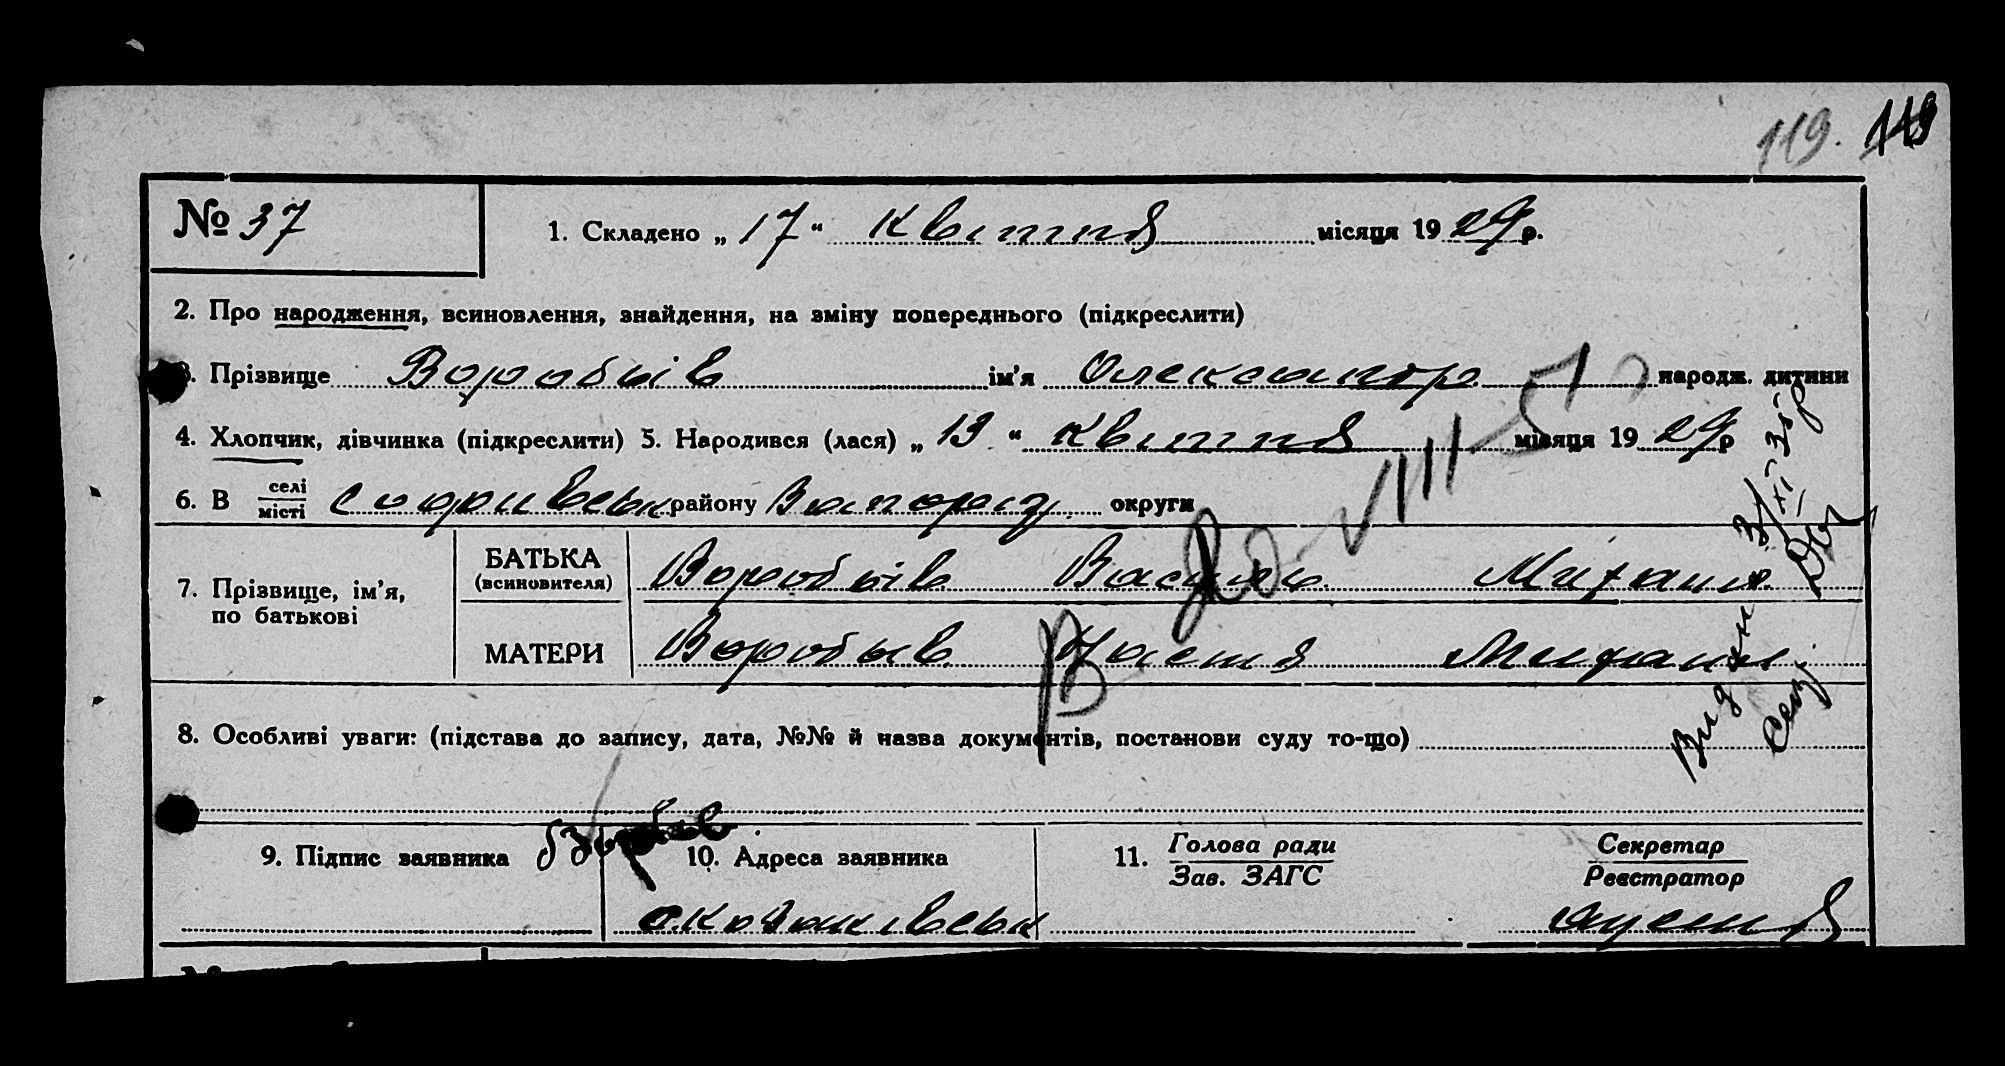 119. 119
№ 37
1. Складено „ 17 “ Квітня місяця 19 29 р.
2. Про народження, всиновлення, знайдення, на зміну попереднього (підкреслити)
3. Прізвище Воробьів ім’я Олександр народж. дитини
4. Хлопчик, дівчинка (підкреслити) 5. Народився (лася) „ 13 “ Квітня місяця 19 29 р
6. В селі
місті району Запоріз. округи
7. Прізвище, ім’я,
по батькові
БАТЬКА
(всиновителя)
Воробьів Василь Михайл.
МАТЕРИ
Воробьів Настя Михайл.
8. Особливі уваги: (підстава до запису, дата, №№ й назва документів, постанови суду то-що)
9. Підпис заявника
10. Адреса заявника
11. Голова ради
Зав. ЗАГС
Секретар
Реєстратор